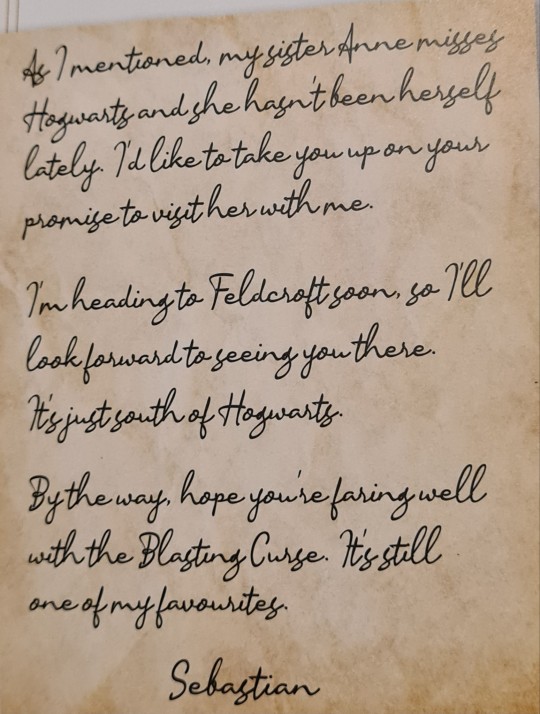 As I mentioned, my sister Anne misses
Hogwarts and she hasn't been herself
lately. I'd like to take you up on your
promise to visit her with me.
I'm heading to Feldcroft soon, so I'll
look forward to seeing you there.
It's just south of Hogwarts.
By the way, hope you're faring well
with the Blasting Curse. It's still
one of my favourites.
Sebastian